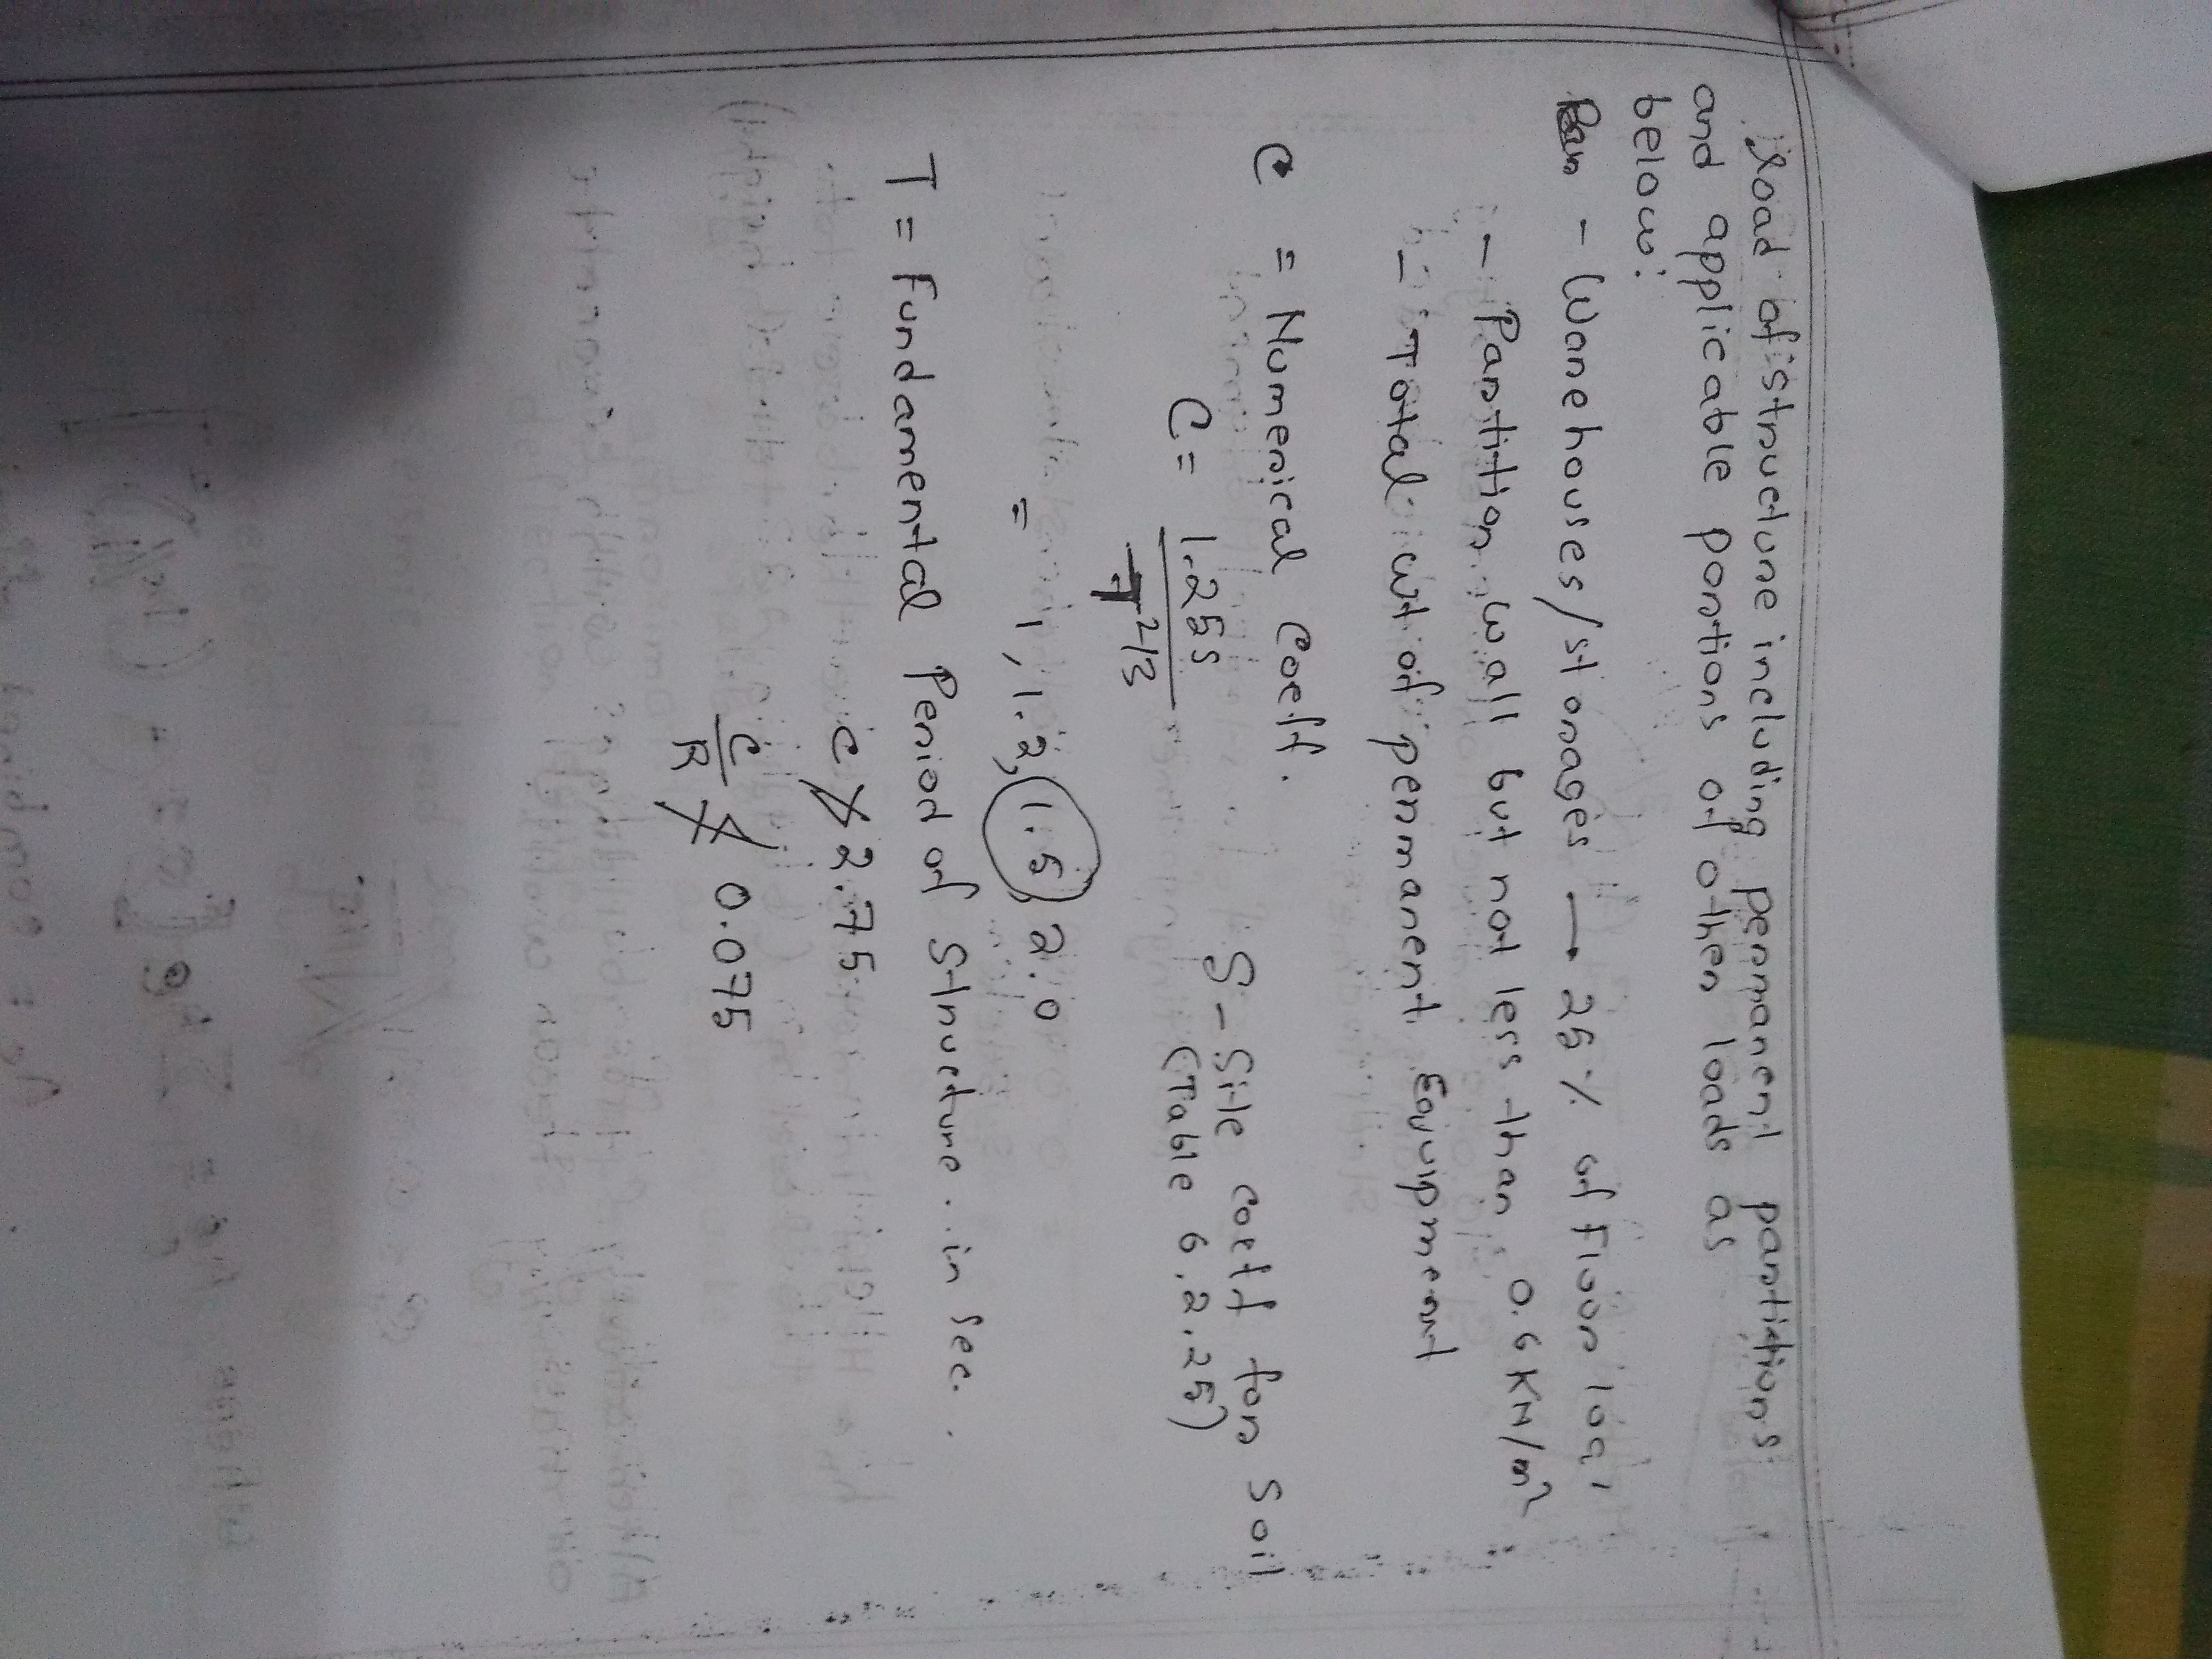 load of structure including permanent partitions
and applicable portions of other loads as
below:
- Warehouses/storages → 25% of floor load
- Partition wall but not less than 0.6 KN/m²
- Total wt of permanent Equipment
C = Numerical coeff.
C = 1.25S / T^2/3
S - Site coeff for soil
(Table 6.2.25)
= 1, 1.2, 1.5, 2.0
T = Fundamental Period of Structure in sec.
C ≯ 2.75
C/R ≮ 0.075